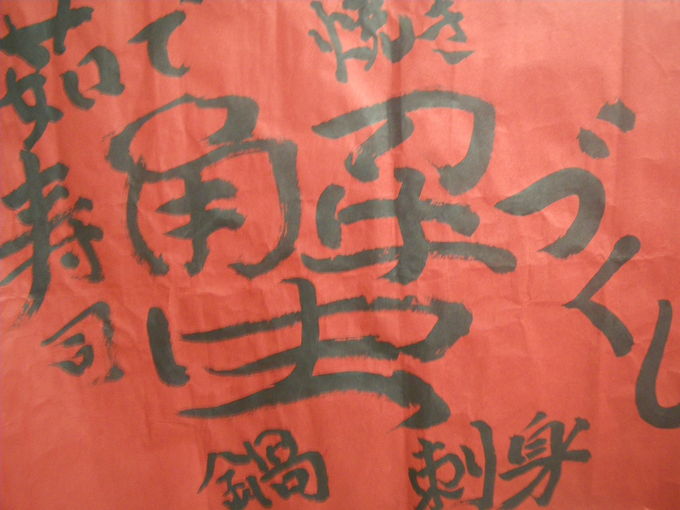 茹で
焼き
蟹づくし
寿司
鍋
刺身